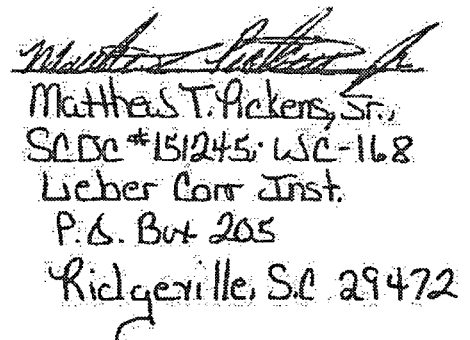 Matthew T. Pickens, Jr.,
SCDC #151245; WC-168
Lieber Corr Inst.
P.O. Box 205
Ridgeville, S.C 29472